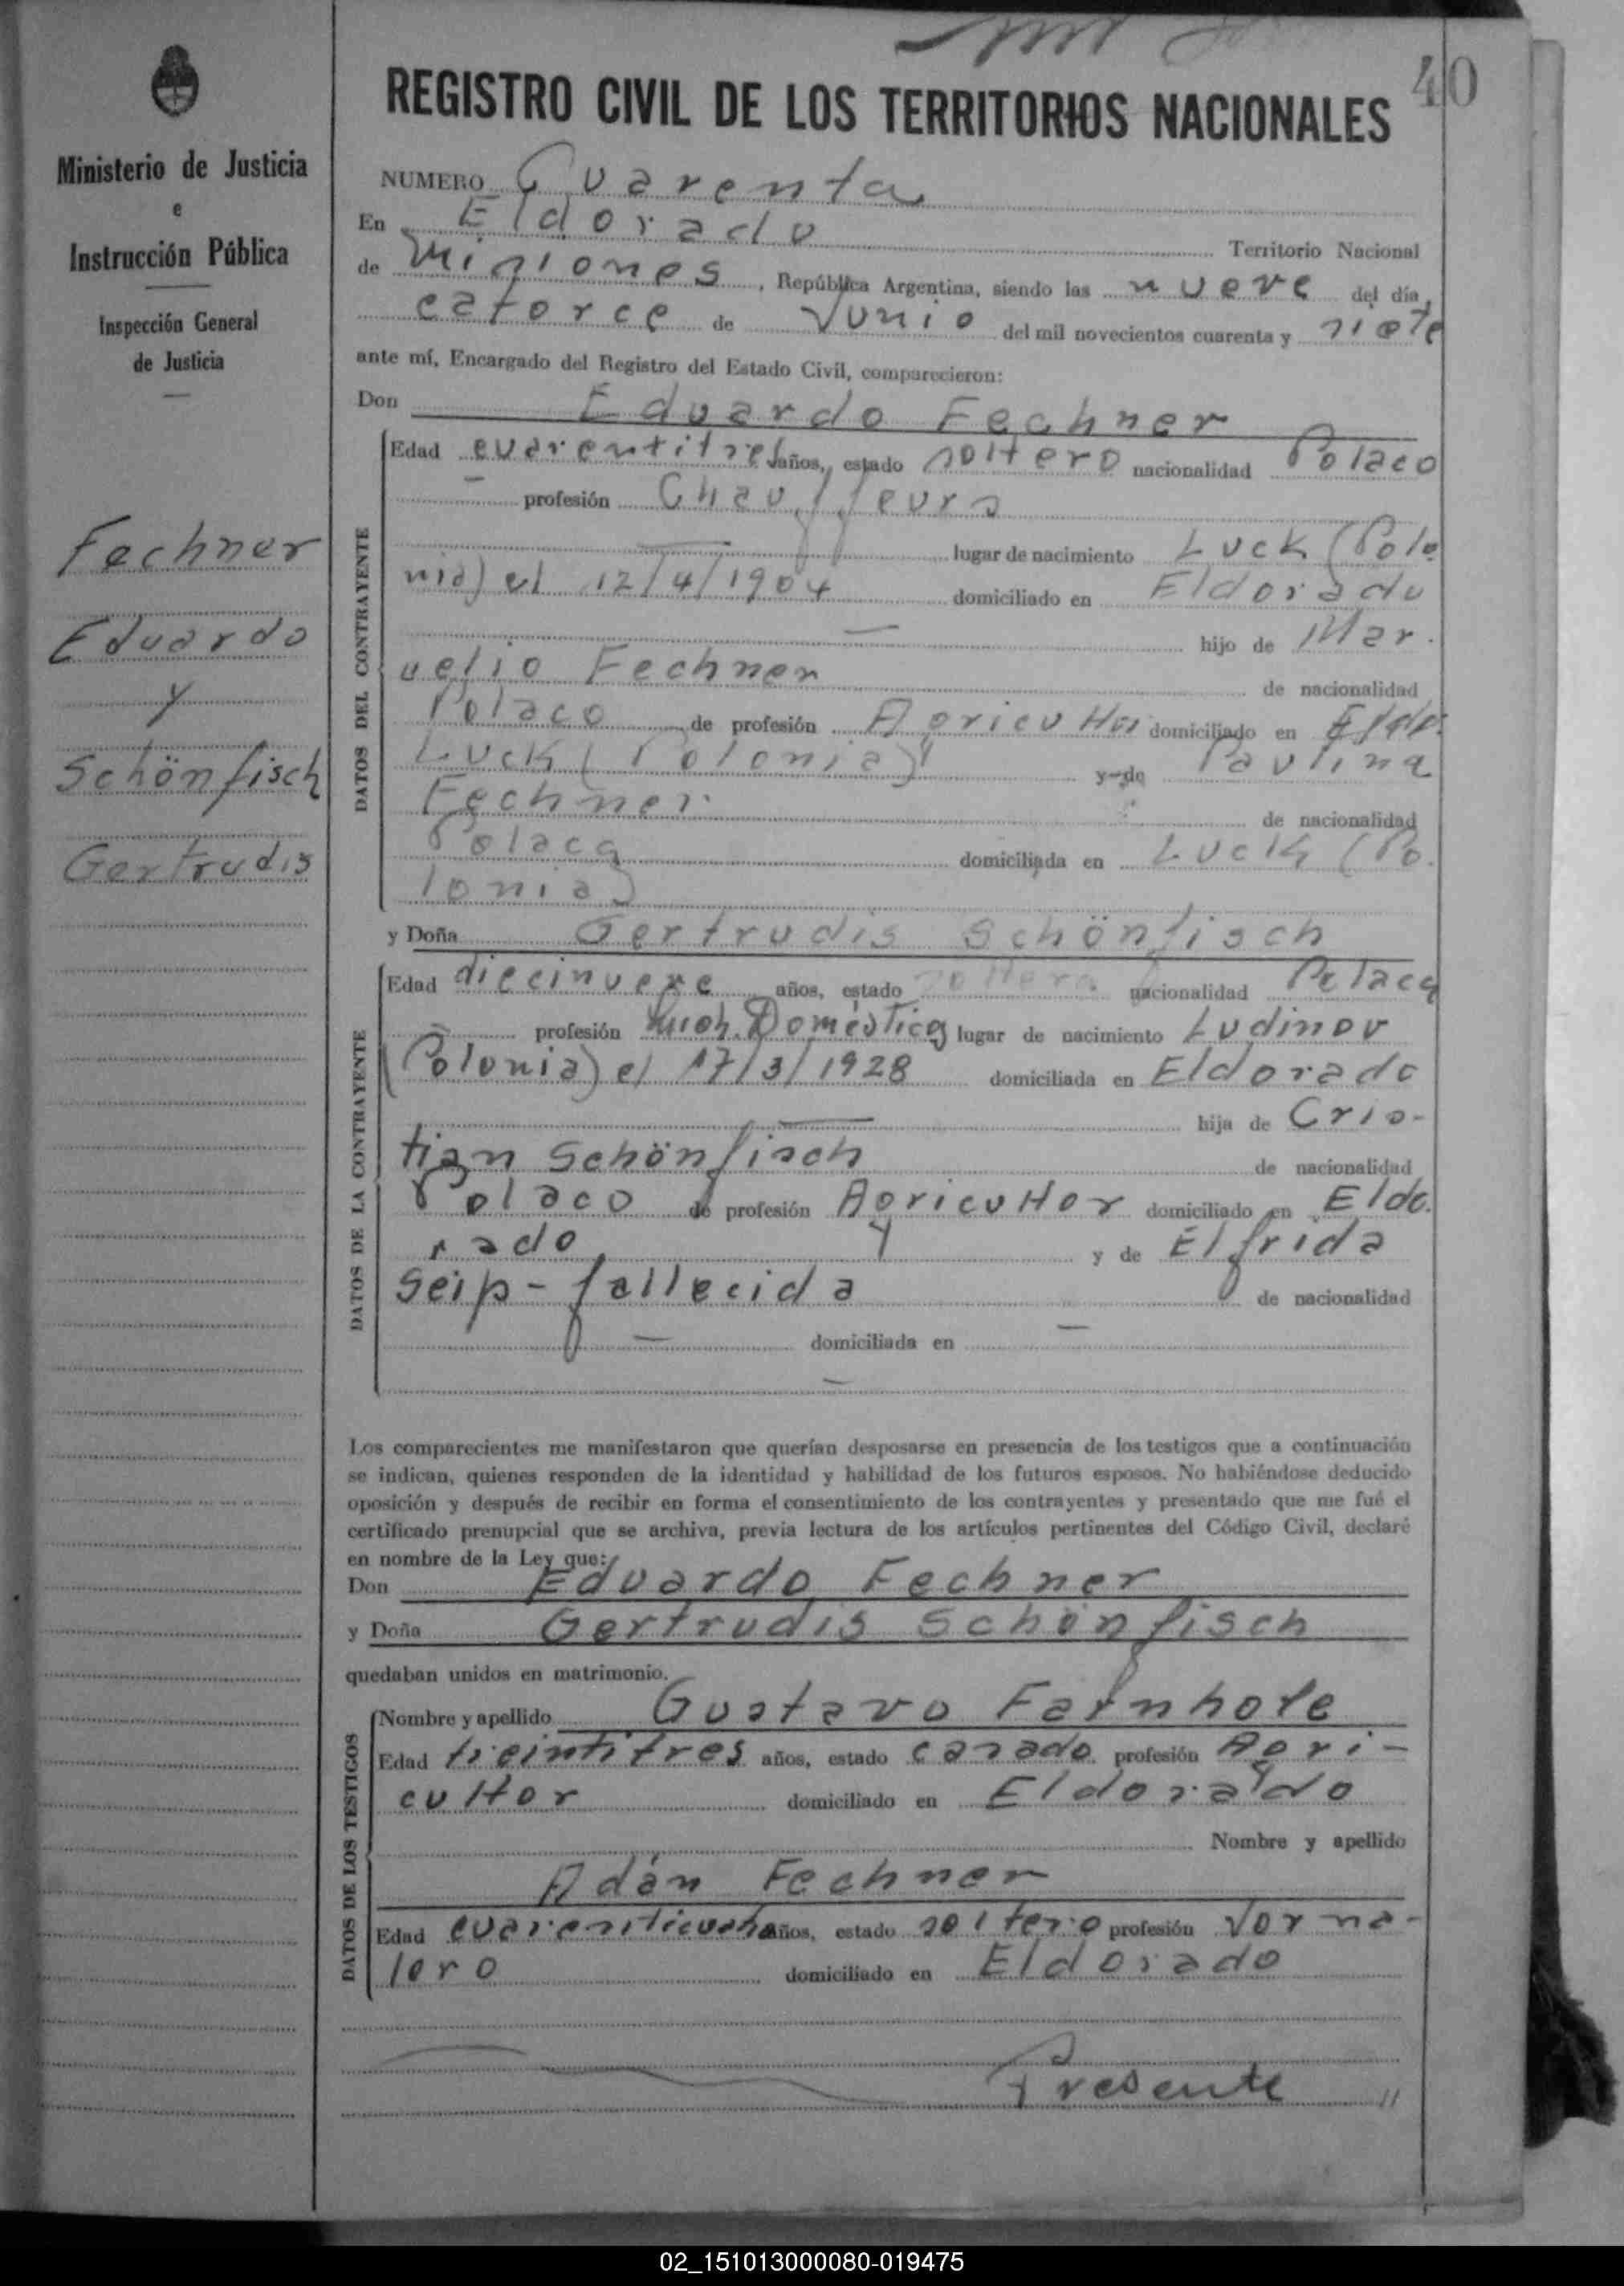 40
Ministerio de Justicia
e
Instrucción Pública
Inspección General
de Justicia
Fechner
Eduardo
y
Schönfisch
Gertrudis
REGISTRO CIVIL DE LOS TERRITORIOS NACIONALES
NUMERO Cuarenta
En Eldorado Territorio Nacional
de Misiones, República Argentina, siendo las nueve del día
catorce de Junio del mil novecientos cuarenta y siete
ante mí, Encargado del Registro del Estado Civil, comparecieron:
Don Eduardo Fechner
DATOS DEL CONTRAYENTE
Edad cuarentitres años, estado soltero nacionalidad Polaco
profesión Chauffeurs
lugar de nacimiento Luck (Polo
nia) el 12/4/1904 domiciliado en Eldorado
hijo de
Fechner de nacionalidad
Polaco de profesión Agricultor domiciliado en Eldo.
Luck (Polonia) y de Paulina
Fechner de nacionalidad
Polaca domiciliada en Luck (Po.
lonia)
y Doña Gertrudis Schönfisch
DATOS DE LA CONTRAYENTE
Edad diecinueve años, estado soltera nacionalidad Polaca
profesión Doméstica lugar de nacimiento Ludinov
(Polonia) el 17/3/1928 domiciliada en Eldorado
hija de Cris-
tian Schönfisch de nacionalidad
Polaco de profesión Agricultor domiciliado en Eldo.
rado y de Elfrida
Seip - fallecida de nacionalidad
domiciliada en
Los comparecientes me manifestaron que querían desposarse en presencia de los testigos que a continuación
se indican, quienes responden de la identidad y habilidad de los futuros esposos. No habiéndose deducido
oposición y después de recibir en forma el consentimiento de los contrayentes y presentado que me fué el
certificado prenupcial que se archiva, previa lectura de los artículos pertinentes del Código Civil, declaré
en nombre de la Ley que:
Don Eduardo Fechner
y Doña Gertrudis Schönfisch
quedaban unidos en matrimonio.
DATOS DE LOS TESTIGOS
Nombre y apellido Gustavo
Edad treintitres años, estado casado profesión Agri-
cultor domiciliado en Eldorado
Nombre y apellido
Adán Fechner
Edad años, estado soltero profesión Jorna-
lero domiciliado en Eldorado
Presente //
02_151013000080-019475